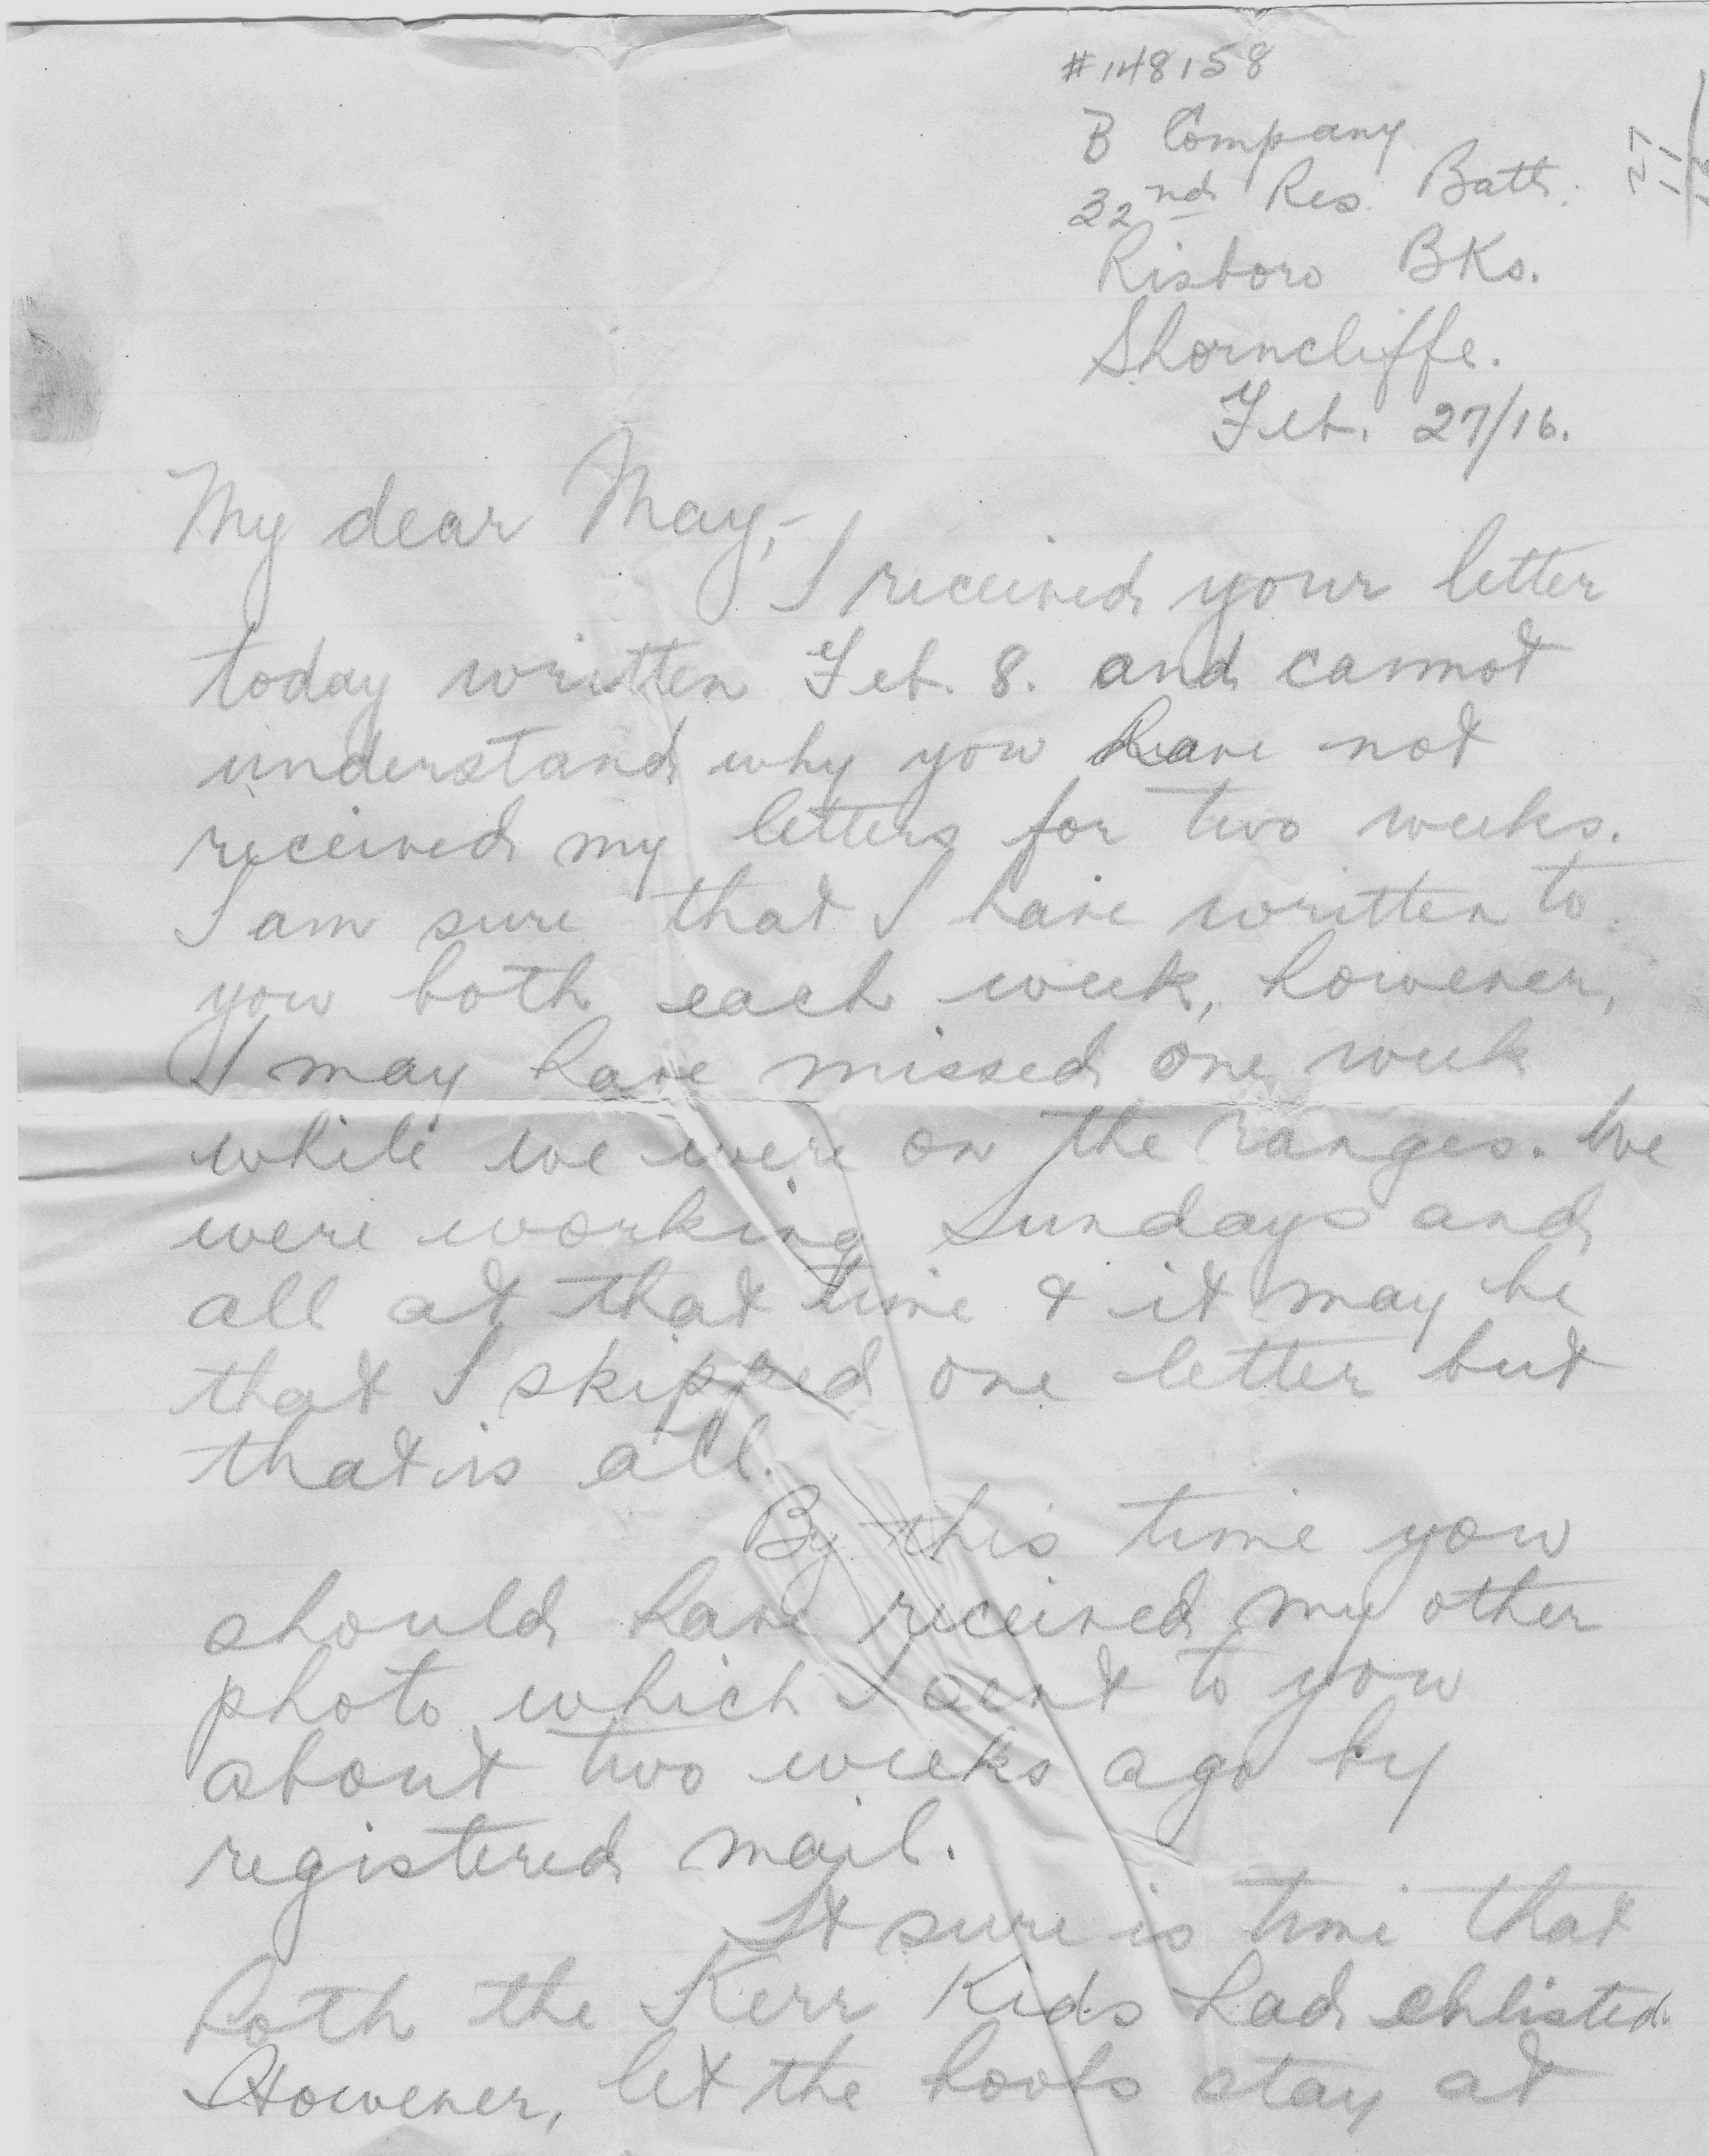 #148158
B Company
32nd Res. Batt.
Risboro BKs.
Shorncliffe.
Feb. 27/16.
27
11
My dear May;-
I received your letter
today written Feb. 8. and cannot
understand why you have not
received my letters for two weeks.
I am sure that I have written to
you both each week, however,
I may have missed one week
while we were on the ranges. We
were working Sundays and
all at that time & it may be
that I skipped one letter but
that is all.
By this time you
should have received my other
photo which I sent to you
about two weeks ago by
registered mail.
It sure is time that
both the Kerr Kids had enlisted.
However, let the boobs stay at